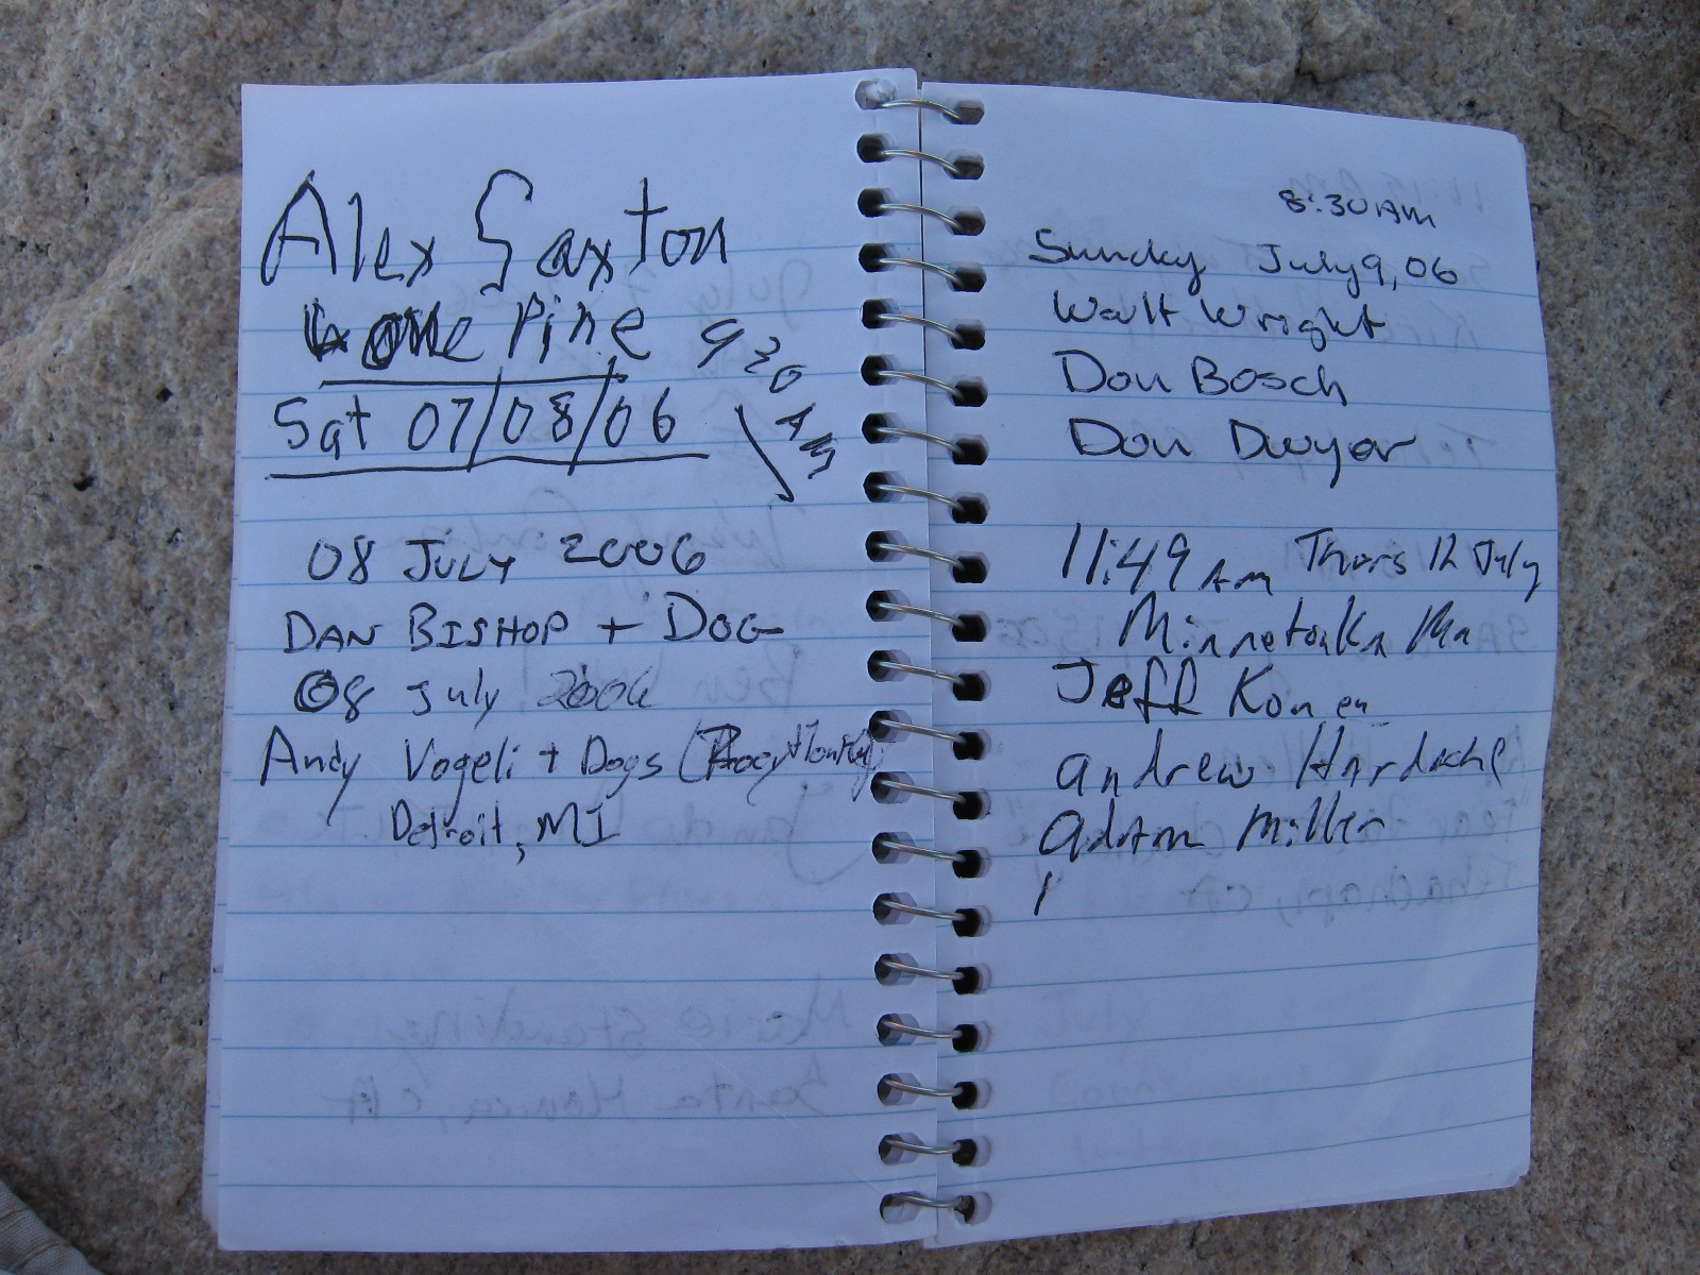 Alex Saxton
Lone Pine 930 AM
Sat 07/08/06
08 JULY 2006
DAN BISHOP + DOG
08 July 2006
Andy Vogeli + Dogs
Detroit, MI
8:30 AM
Sunday July 9, 06
Walt Wright
Don Bosch
Don Dwyer
11:49 Am Thurs 12 July
Minnetonka Mn
Jeff Konen
andrew
adam miller